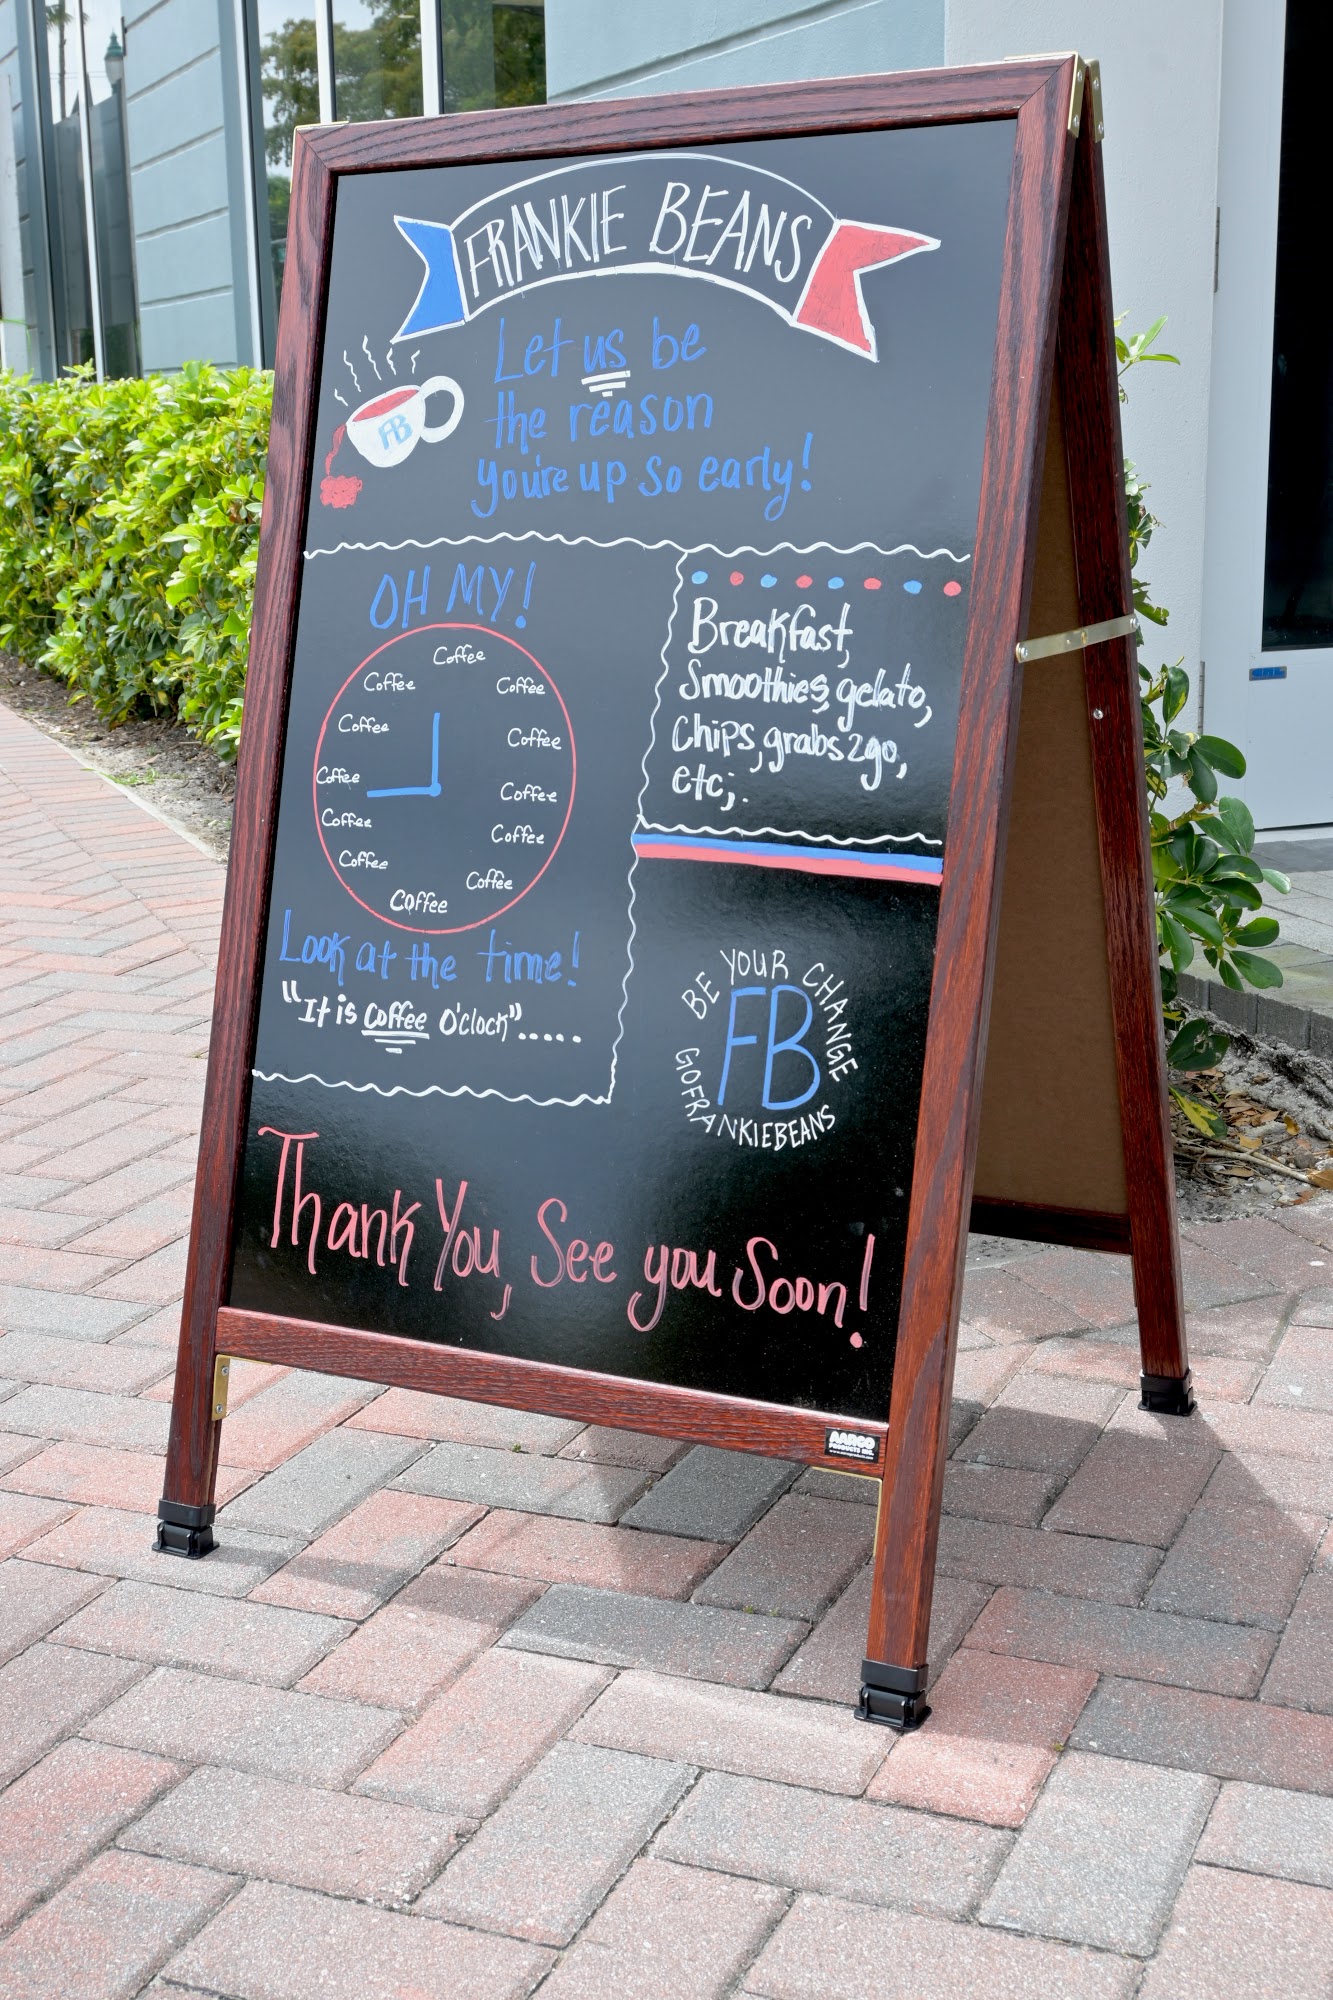 FRANKIE BEANS
Let us be
the reason
you're up so early!
FB
OH MY!
Coffee
Coffee
Coffee
Coffee
Coffee
Coffee
Coffee
Coffee
Coffee
Coffee
Coffee
Coffee
Look at the time!
"It is Coffee O'clock".....
Breakfast,
Smoothies, gelato,
Chips, grabs 2go,
etc;.
BE YOUR CHANGE
FB
GOFRANKIEBEANS
Thank You, See you Soon!
AARCO
PRODUCTS INC.